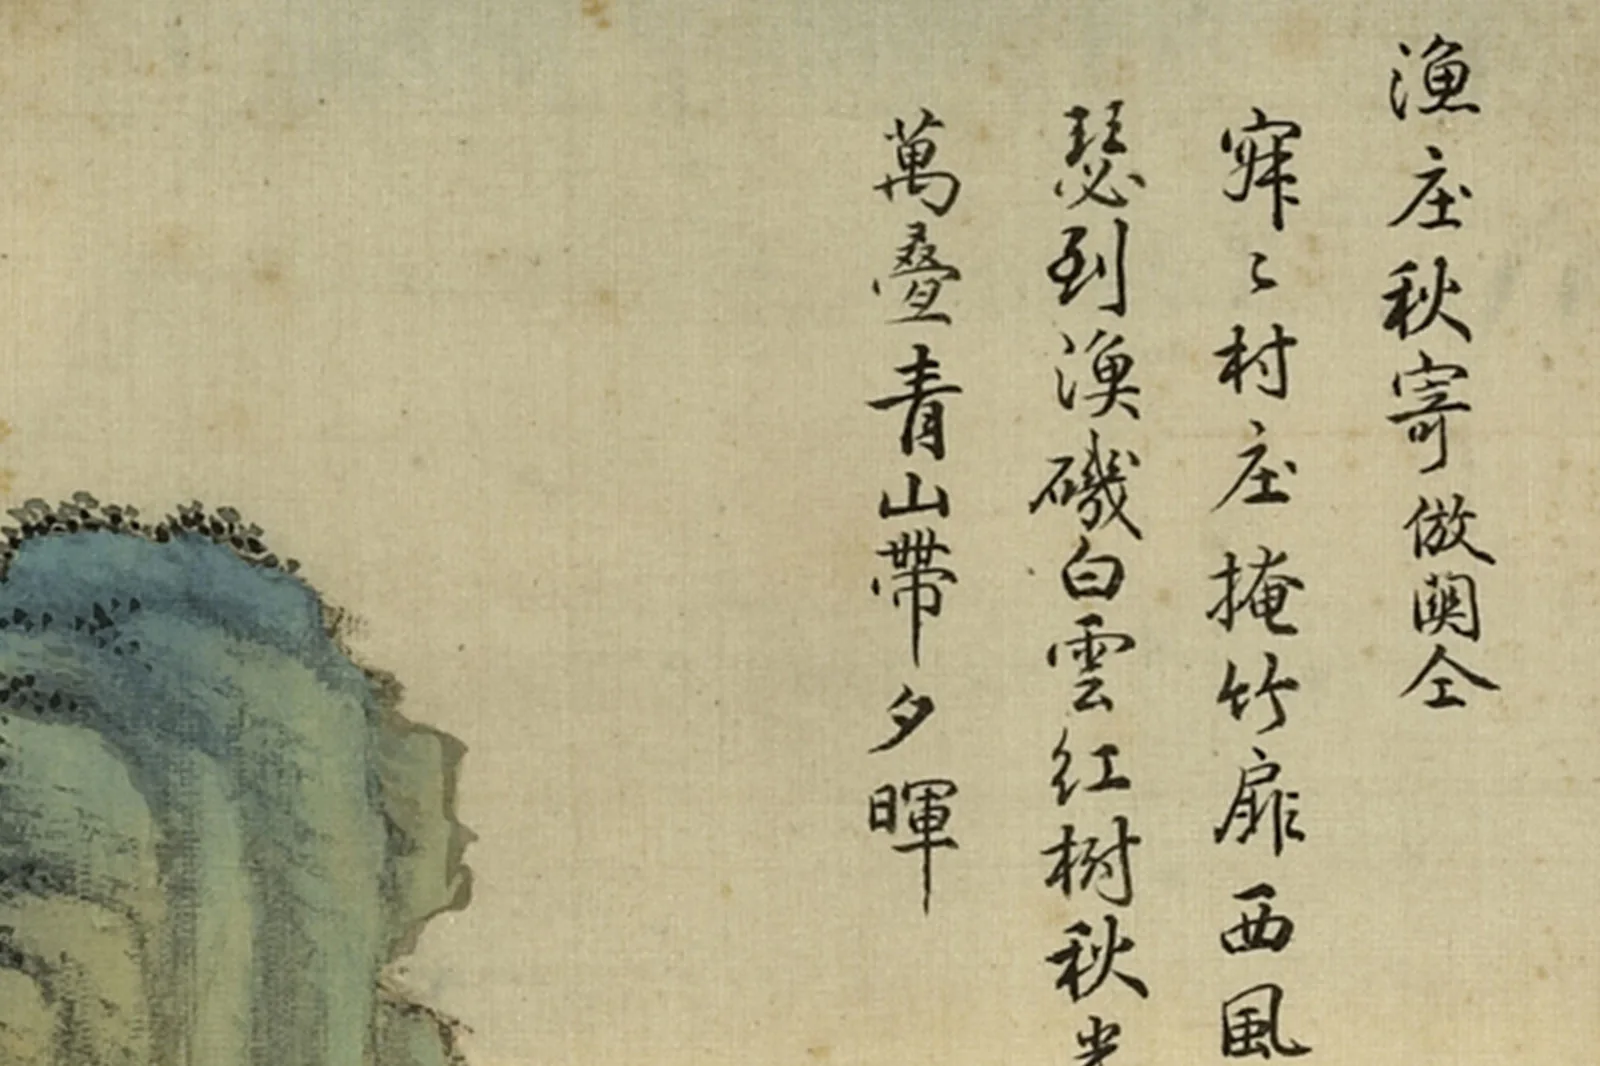 漁庄秋寄倣関仝
寂〻村庄掩竹扉西風
瑟到漁磯白雲紅樹秋光
萬疊青山帶夕暉